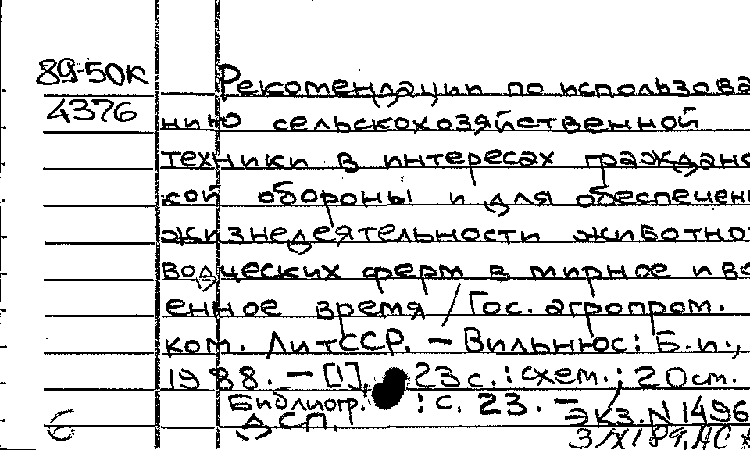 89-50К Рекомендации по использова
4376 нию сельскохозяйственной
техники в интересах граждано
кой обороны и для обеспечени
жизнедеятельности животно
водческих ферм в мирное и во
енное время / Гос. агропром.
ком. ЛитССР. – Вильнюс: Б.и.,
1988. – [1], 23 с. : схем. ; 20 см.
Библиогр. : с. 23. –
ДСП. Экз. N 1496
6 3/XI 89, ДС